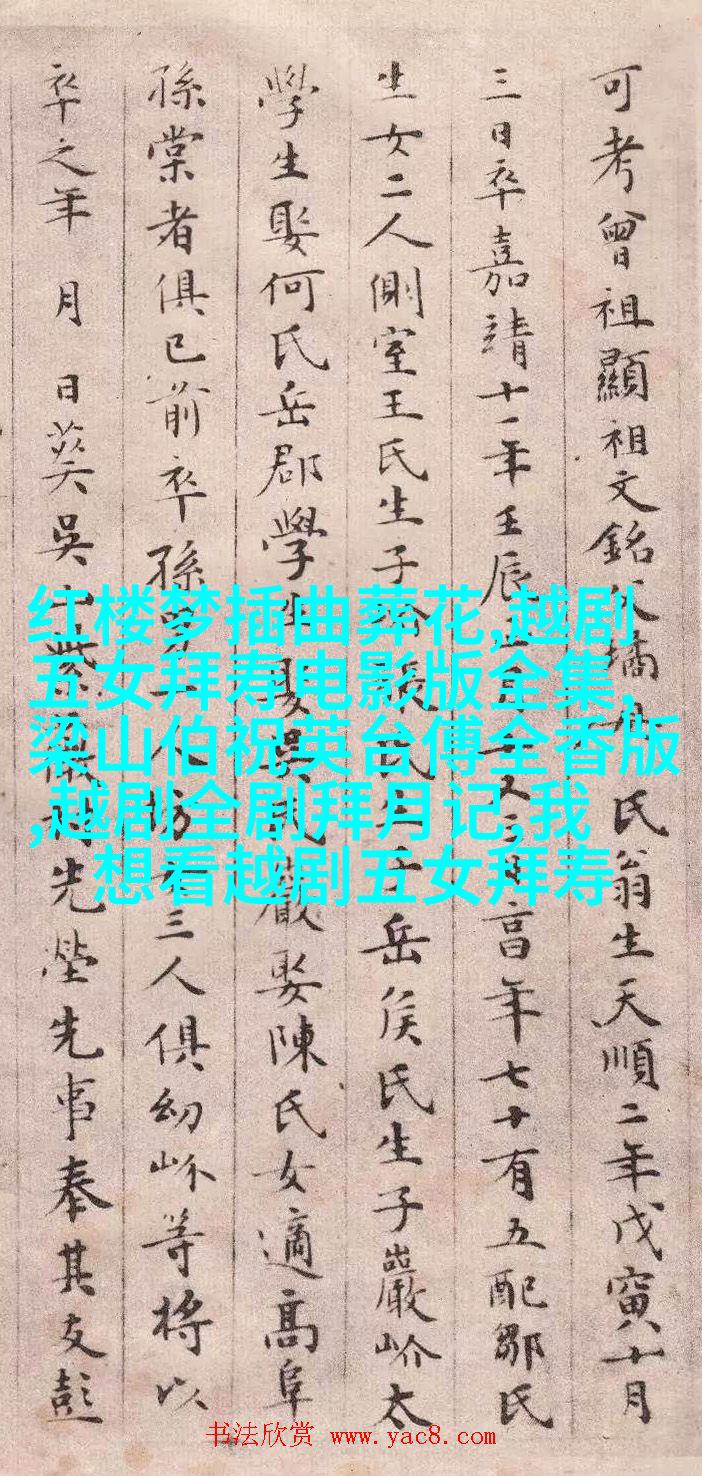 可考曾祖顯祖文銘父
氏翁生天順二年戊寅十月
三日卒嘉靖十一年壬辰
年七十有五配鄒氏
生女二人側室王氏生子
岳侯氏生子嚴岕太
學生娶何氏岳郡學生娶吳氏
娶陳氏女適高阜
孫棠者俱已前卒孫男
三人俱幼岕等將以
卒之年 月 日葬吳
先塋先事奉其友彭
红楼梦插曲葬花,越剧
五女拜寿电影版全集,
梁山伯祝英台傅全香版
,越剧全剧拜月记,我
想看越剧五女拜寿
书法欣赏 www.yac8.com